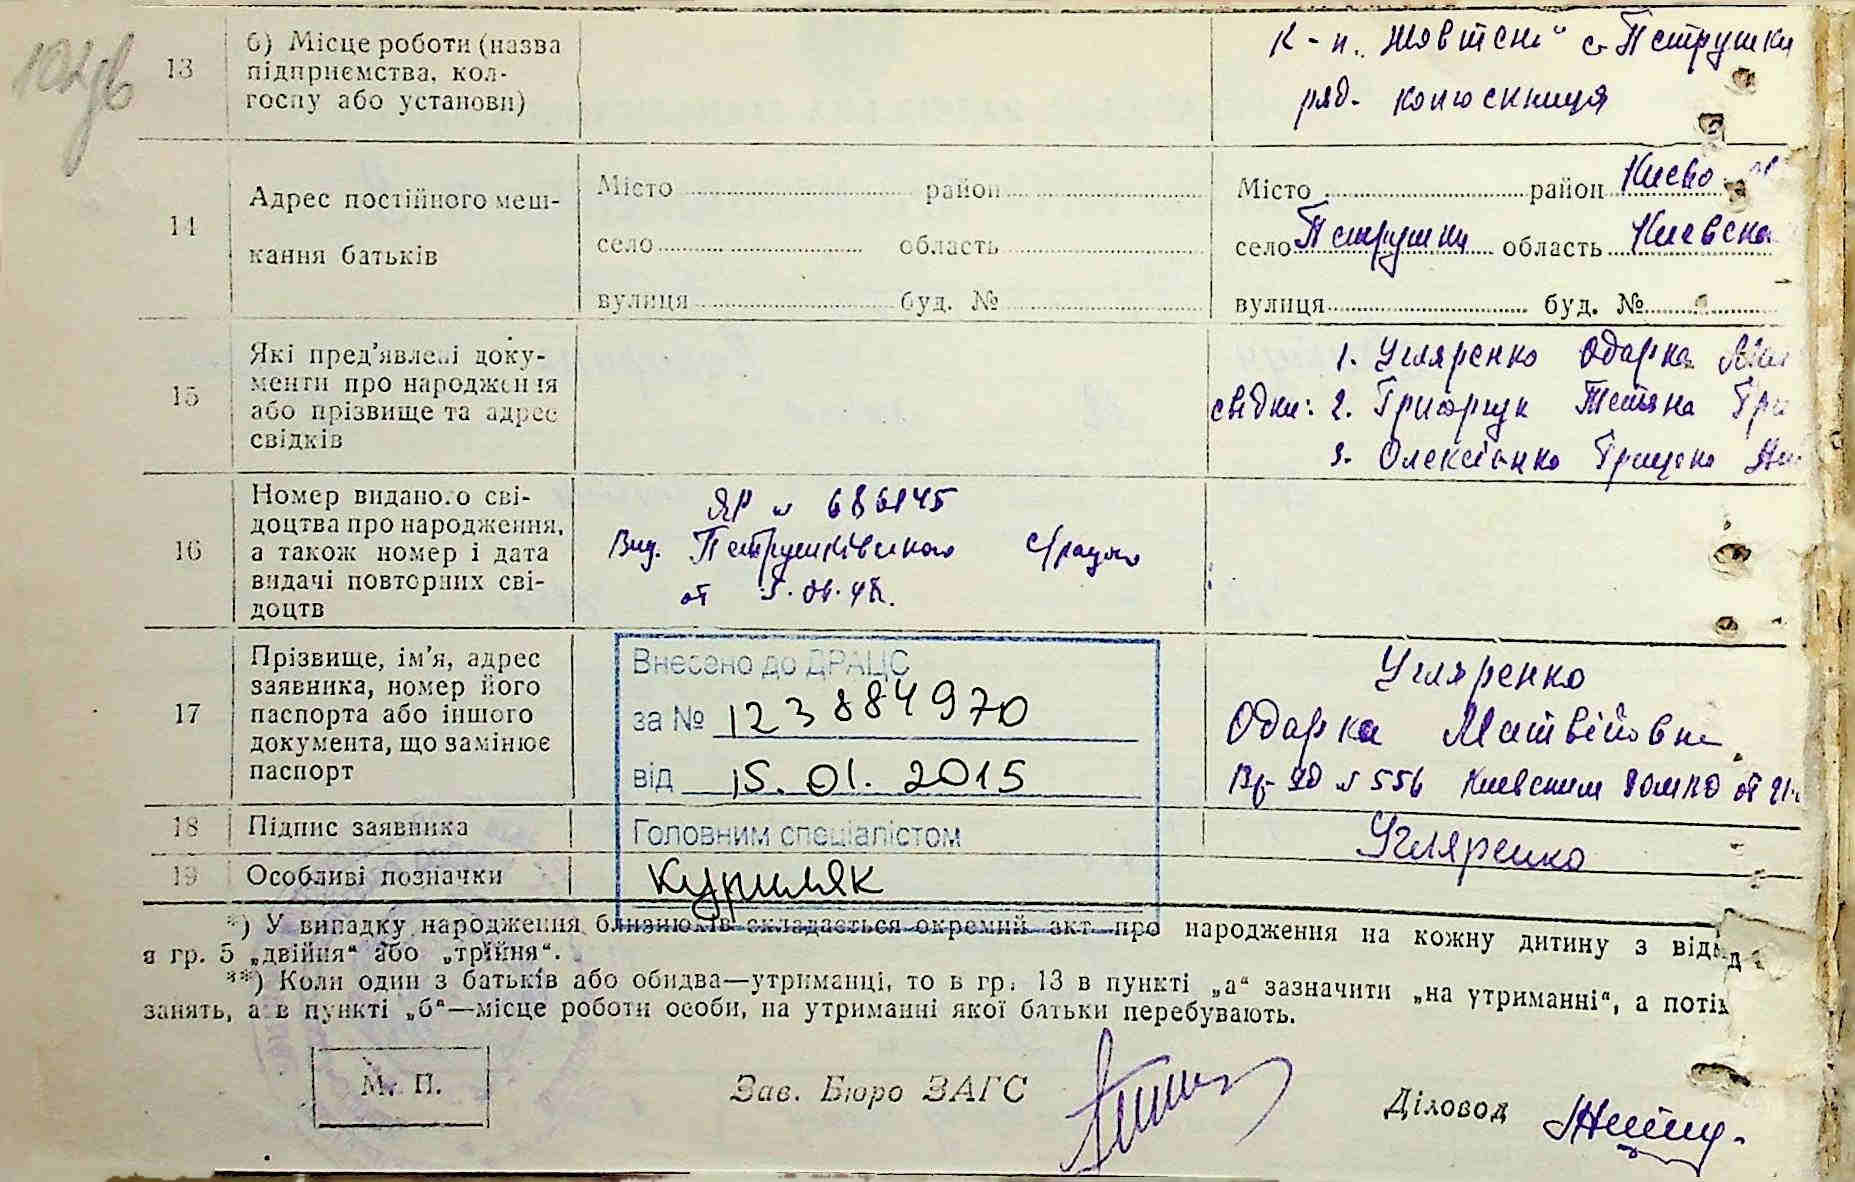 13
б) Місце роботи (назва
підприємства, кол-
госпу або установи)
к-п. Жовтень" с. Петрушки
ряд. колгоспниця
14
Адрес постійного меш-
кання батьків
Місто район
село область
вулиця буд. №
Місто район Києво
село Петрушки область Київська
вулиця буд. №
15
Які пред'явлені доку-
менти про народження
або прізвище та адрес
свідків
1. Угляренко Одарка
свідки: 2. Григорчук Тетяна Гри
3. Грицько
16
Номер виданого сві-
доцтва про народження,
а також номер і дата
видачі повторних сві-
доцтв
ЯР № 686145
Вид. Петрушківською с/радою
от
17
Прізвище, ім'я, адрес
заявника, номер його
паспорта або іншого
документа, що замінює
паспорт
Внесено до ДРАЦС
за № 123884970
від 15.01.2015
Головним спеціалістом
Куриляк
Угляренко
Одарка Матвіївна
№ 556 Киевским от 21
18
Підпис заявника
Угляренко
19
Особливі позначки
*) У випадку народження близнюків складається окремий акт про народження на кожну дитину з від
в гр. 5 „двійня“ або „трійня“.
**) Коли один з батьків або обидва—утриманці, то в гр. 13 в пункті „а“ зазначити „на утриманні“, а потім
занять, а в пункті „б“—місце роботи особи, на утриманні якої батьки перебувають.
М. П.
Зав. Бюро ЗАГС
Діловод